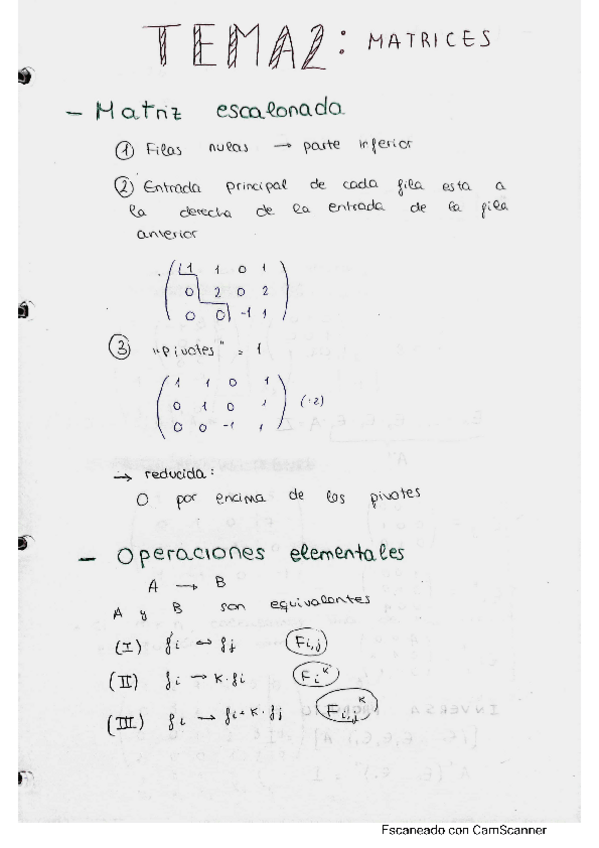 TEMA2: MATRICES
- Matriz escalonada
① Filas nulas → parte inferior
② Entrada principal de cada fila esta a
la derecha de la entrada de la fila
anterior
1 1 0 1
0 2 0 2
0 0 -1 1
③ "Pivotes" = 1
1 1 0 1
0 1 0 1 (÷2)
0 0 -1 1
→ reducida:
0 por encima de los pivotes
- Operaciones elementales
A → B
A y B son equivalentes
(I) fi ↔ fj Fi,j
(II) fi → k·fi Fi^k
(III) fi → fi+k·fj Fi,j^k
INVERSA
Escaneado con CamScanner